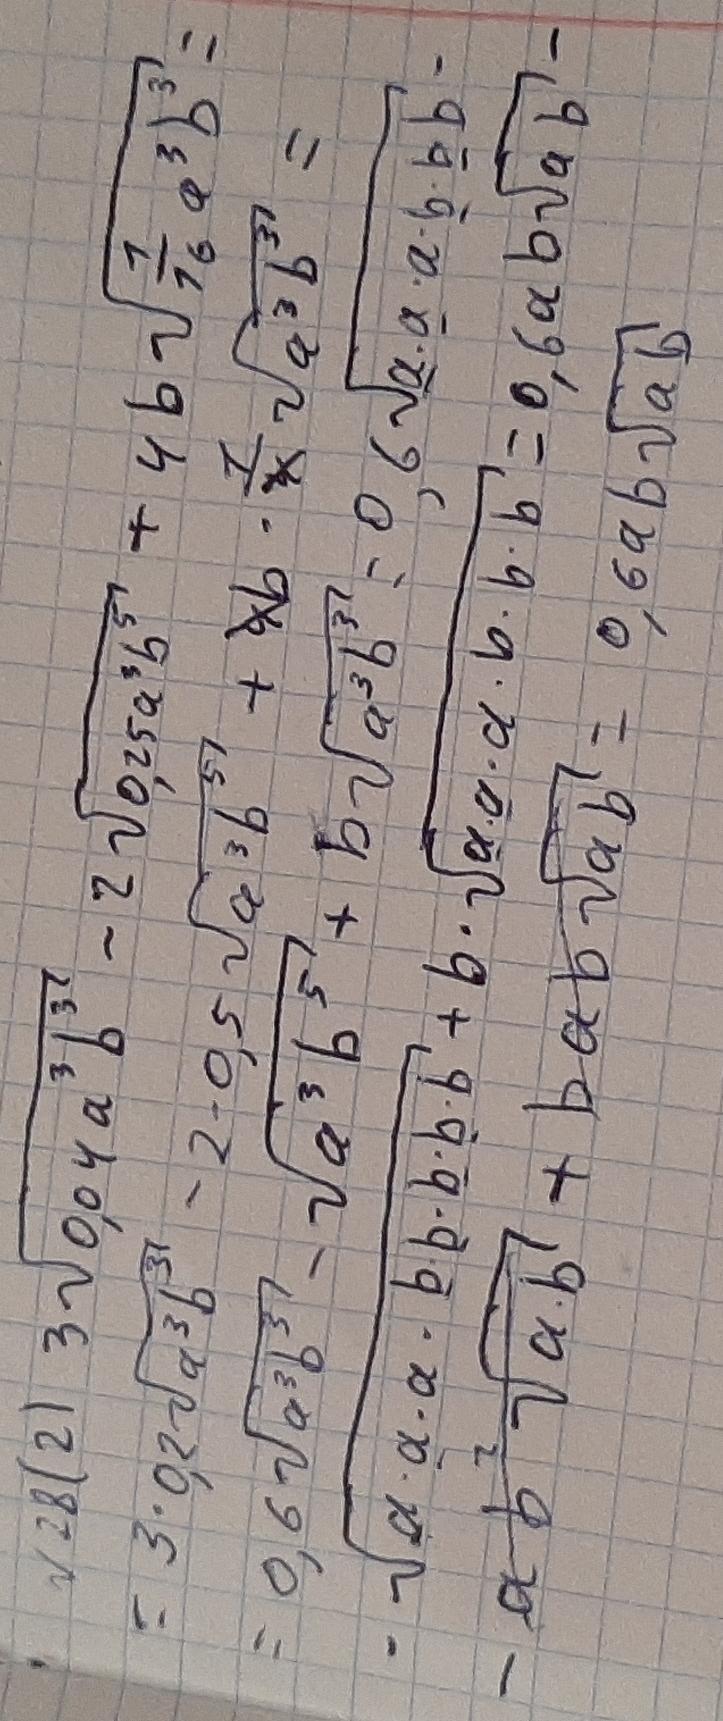 √28(2) 3√0,04a³b³ - 2√0,25a³b⁵ + 4b√1/16 a³b³ =
= 3·0,2√a³b³ - 2·0,5√a³b⁵ + 4b · 1/4 √a³b³ =
= 0,6√a³b³ - √a³b⁵ + b√a³b³ = 0,6√a·a·a·b·b·b -
- √a·a·a·b·b·b·b·b + b·√a·a·a·b·b·b = 0,6ab√ab -
- ab²√a·b + bab√ab = 0,6ab√ab